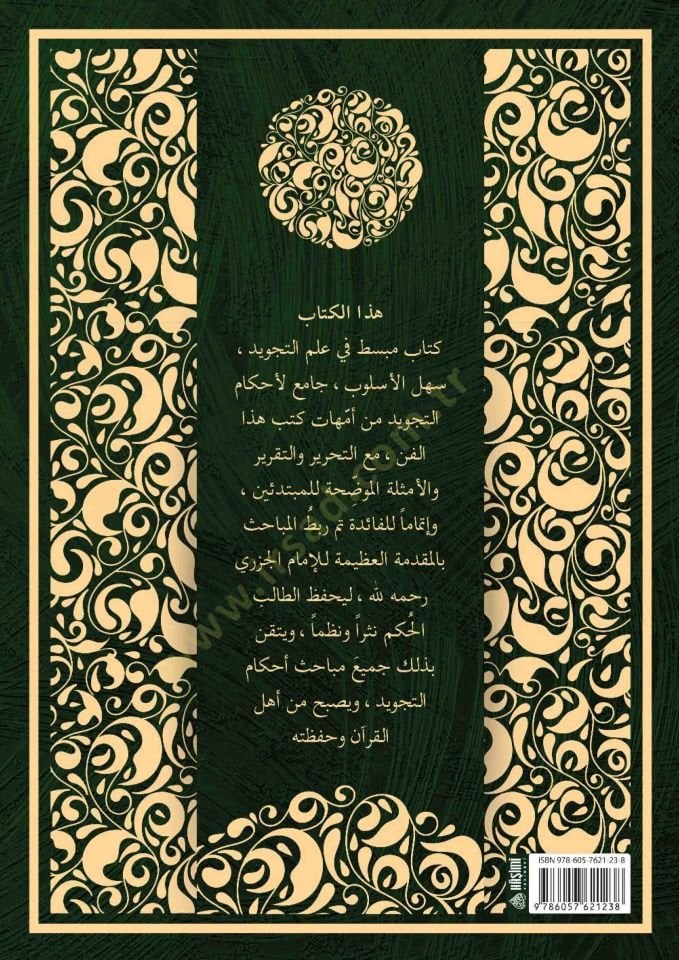 هذا الكتاب
كتاب مبسط في علم التجويد ،
سهل الأسلوب ، جامع لأحكام
التجويد من أمّهات كتب هذا
الفن ، مع التحرير والتقرير
والأمثلة الموضِحة للمبتدئين ،
وإتماماً للفائدة تم ربطُ المباحث
بالمقدمة العظيمة للإمام الجزري
رحمه لله ، ليحفظ الطالب
الحُكم نثراً ونظماً ، ويتقن
بذلك جميعَ مباحث أحكام
التجويد ، ويصبح من أهل
القرآن وحفظته
HAŞİMİ
YAYINEVİ
ISBN 978-605-7621-23-8
9 786057 621238